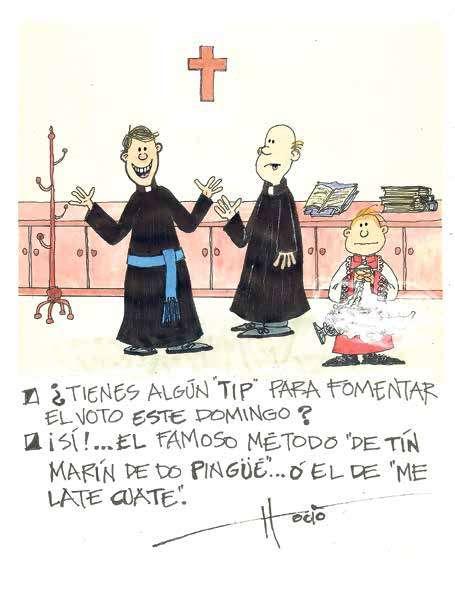 ¿TIENES ALGÚN "TIP" PARA FOMENTAR
EL VOTO ESTE DOMINGO?
¡SÍ!...EL FAMOSO MÉTODO "DE TÍN
MARÍN DE DO PINGÜÉ"...Ó EL DE "ME
LATE CUATE".
Hocio